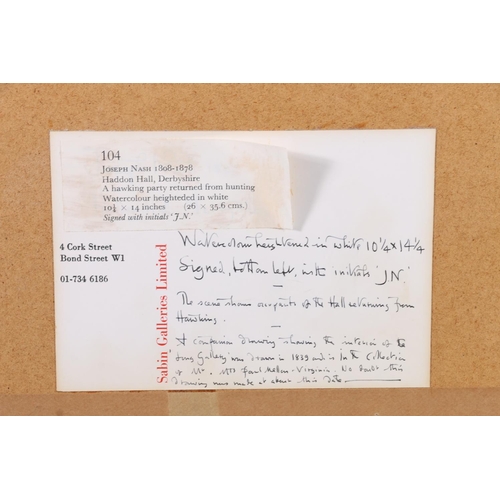 104
JOSEPH NASH 1808-1878
Haddon Hall, Derbyshire
A hawking party returned from hunting
Watercolour heighteded in white
10¼ × 14 inches (26 × 35.6 cms.)
Signed with initials 'J.N.'
4 Cork Street
Bond Street W1
01-734 6186
Sabin Galleries Limited
Watercolour heightened in white 10¼ x 14¼
Signed, bottom left, with initials 'J.N.'
The scene shows occupants of the Hall returning from
Hawking.
A companion drawing showing the interior of the
'Long Gallery' was drawn in 1839 and is in the Collection
of Mr. & Mrs Paul Mellon - Virginia. No doubt this
drawing was made at about this date